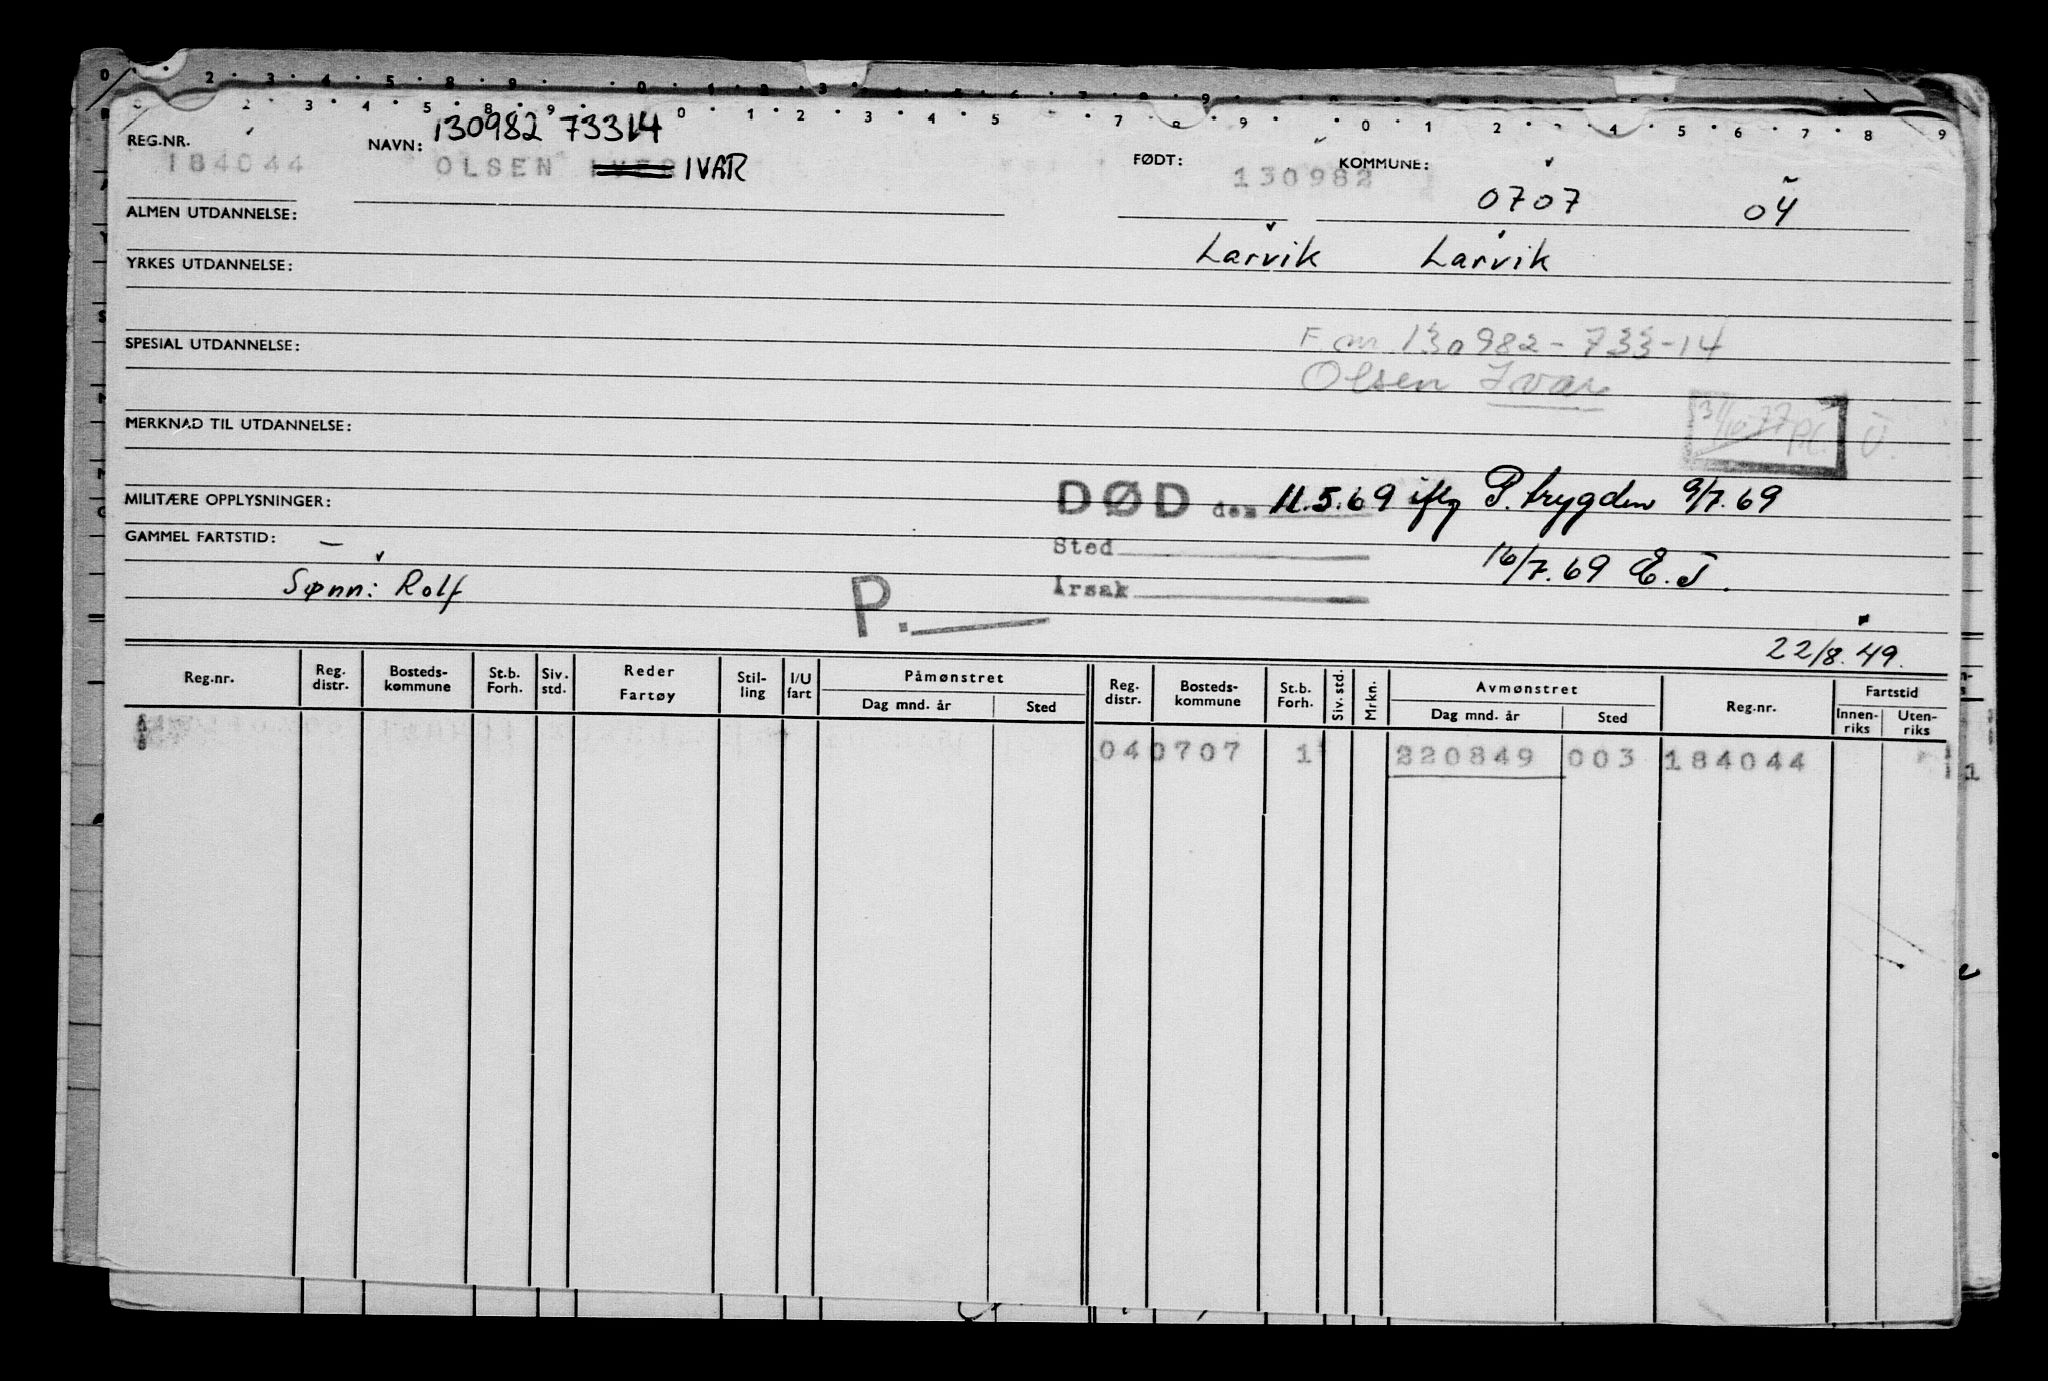 0 2 3 4 5 8 9 0 1 2 3 4 5 6 7 8 9
2 3 4 5 8 9 0 1 2 3 4 5 7 8 9 0 1 2 3 4 5 6 7 8 9
130982 73314
REG.NR. 184044 NAVN: OLSEN IVER IVAR FØDT: 130982 KOMMUNE: 0707 04
ALMEN UTDANNELSE:
Larvik Larvik
YRKES UTDANNELSE:
F nr 130982-733-14
SPESIAL UTDANNELSE:
Olsen Ivar
31/10-77
MERKNAD TIL UTDANNELSE:
DØD den 11.5.69 iflg P.trygden 9/7.69
MILITÆRE OPPLYSNINGER:
GAMMEL FARTSTID: —
Sted
16/7.69 E.T.
Sønn: Rolf
P.
Årsak
22/8.49.
Reg.nr. Reg. distr. Bosteds- kommune St.b. Forh. Siv. std. Reder Fartøy Stil- ling I/U fart Påmønstret Dag mnd. år Sted Reg. distr. Bosteds- kommune St.b. Forh. Siv. std. Mrkn. Avmønstret Dag mnd. år Sted Reg.nr. Fartstid Innen- riks Uten- riks
04 0707 1 220849 003 184044